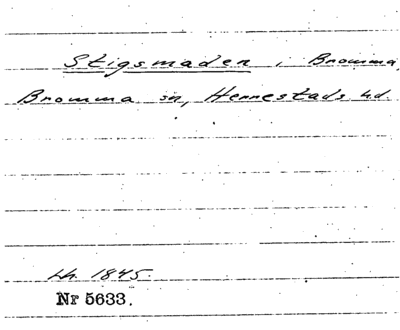 Stigsmaden i Bromma,
Bromma sn, Herrestads hd.
Lh. 1845.
Nr 5633.